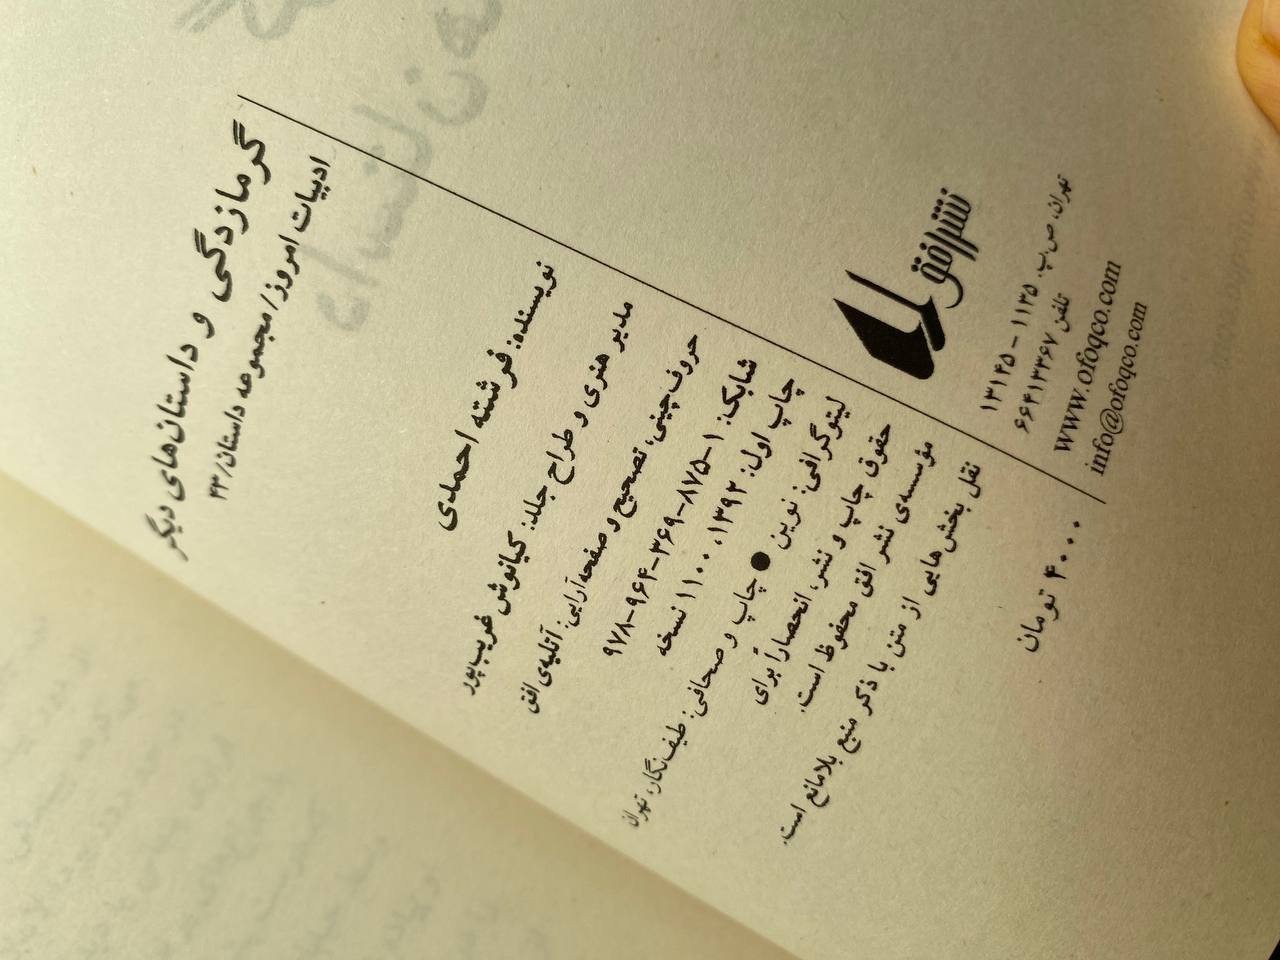 گرمازدگی و داستان‌های دیگر
ادبیات امروز/مجموعه داستان/۴۳
نویسنده: فرشته احمدی
مدیر هنری و طراح جلد: کیانوش غریب‌پور
حروف‌چینی، تصحیح و صفحه‌آرایی: آتلیه‌ی افق
شابک: ۱-۸۷۵-۳۶۹-۹۶۴-۹۷۸
چاپ اول: ۱۳۹۲، ۱۱۰۰ نسخه
لیتوگرافی: نوین ● چاپ و صحافی: طیف‌نگار، تهران
حقوق چاپ و نشر، انحصاراً برای
مؤسسه‌ی نشر افق محفوظ است.
نقل بخش‌هایی از متن با ذکر منبع بلامانع است.
۴۰۰۰ تومان
نشر افق
تهران، ص.پ. ۱۱۳۵ – ۱۳۱۴۵
تلفن ۶۶۴۱۳۳۶۷
www.ofoqco.com
info@ofoqco.com